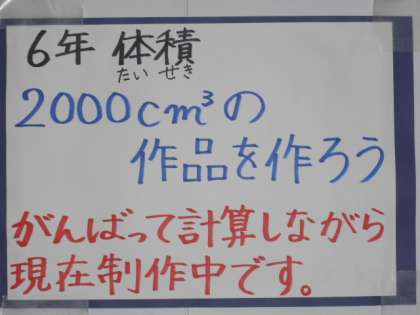 6年 体積
たい せき
2000cm³の
作品を作ろう
がんばって計算しながら
現在制作中です。